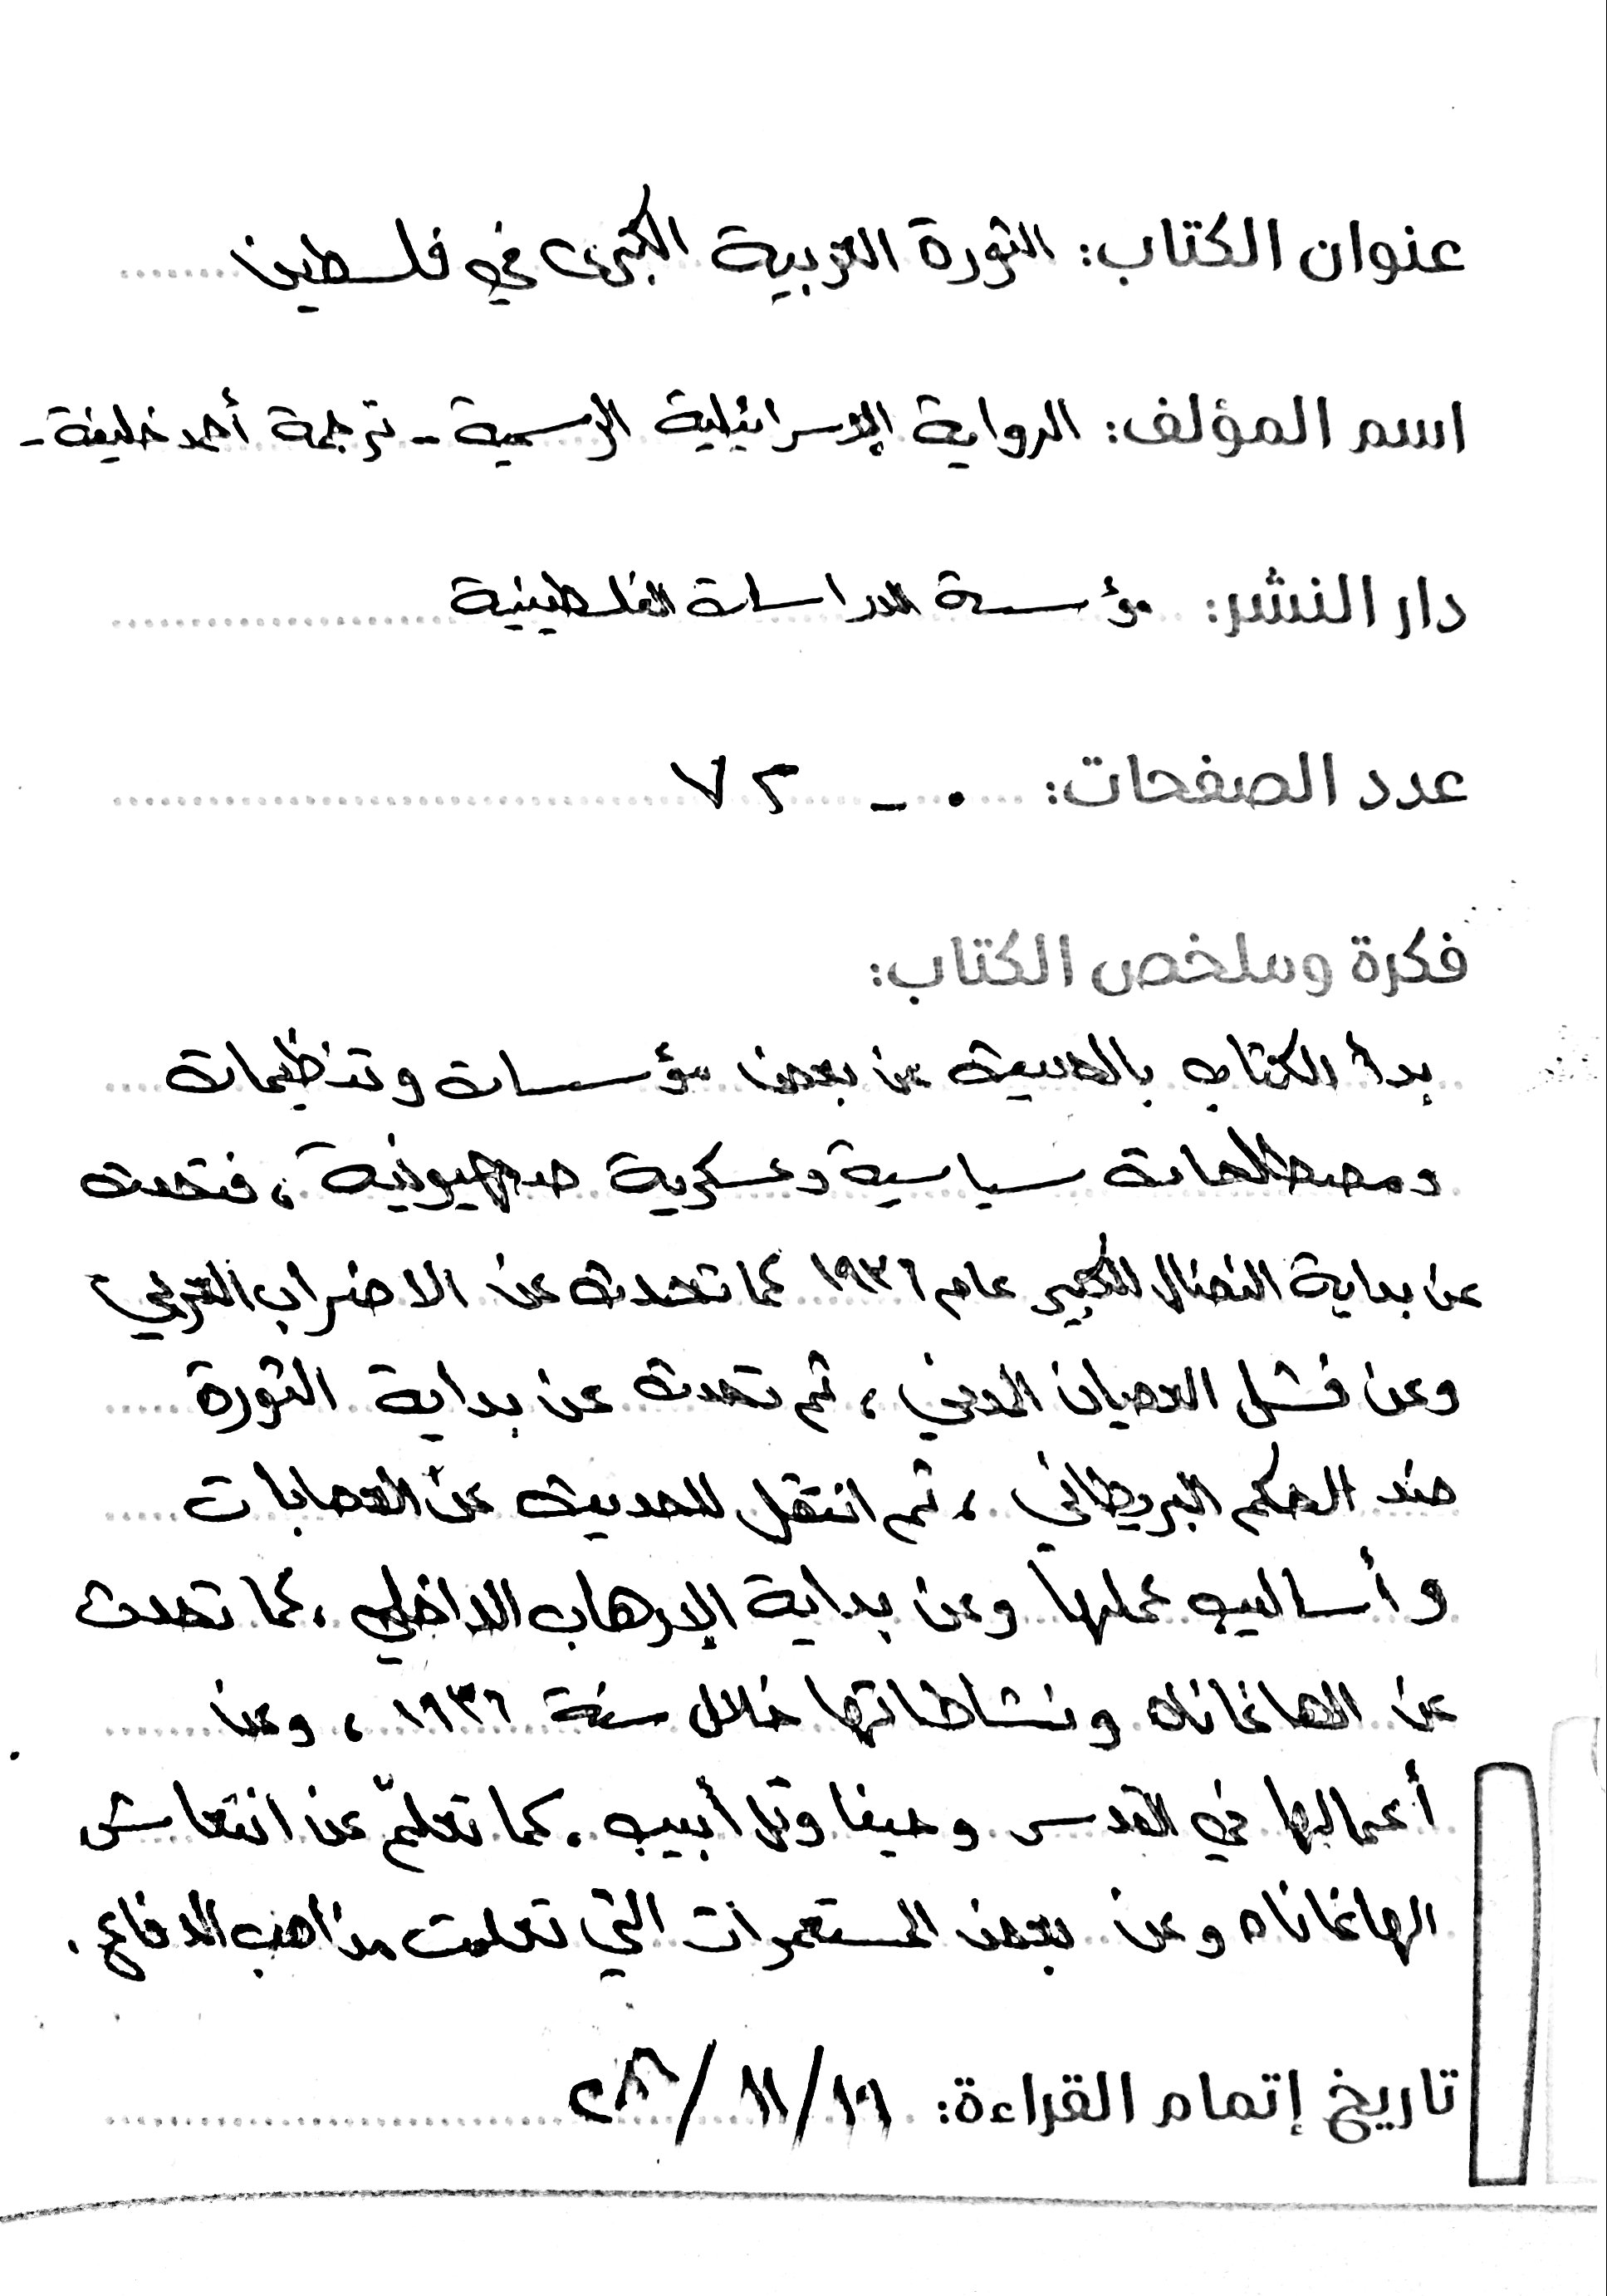 عنوان الكتاب: الثورة العربية الكبرى في فلسطين
اسم المؤلف: الرواية الإسرائيلية الرسمية - ترجمة أحمد خليفة -
دار النشر: مؤسسة الدراسات الفلسطينية
عدد الصفحات: ٠ - ٧٢
فكرة وملخص الكتاب:
بدأ الكتاب بالحديث عن بعض مؤسسات وتنظيمات
ومصطلحات سياسية وعسكرية صهيونية، فتحدث
عن بداية النضال الكبير عام ١٩٣٦ كما تحدث عن الاضراب العربي
وعن فشل العصيان المدني، ثم تحدث عن بداية الثورة
ضد الحكم البريطاني، ثم انتقل للحديث عن العصابات
وأساليب عملها وعن بداية الإرهاب الداخلي، كما تحدث
عن الهاغاناه ونشاطاتها خلال سنة ١٩٣٦، وعن
أعمالها في القدس وحيفا وتل أبيب. كما تعلمّ عن انتعاش
الهاغاناه وعن بعض المستعمرات التي تعلمت مذاهب الدفاع.
تاريخ إتمام القراءة: ١١/